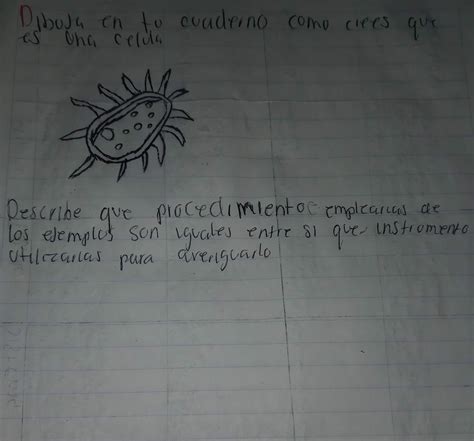 Dibuja en tu cuaderno como crees que
es una celula
Describe que procedimientos emplearias de
los ejemplos son iguales entre si que instrumento
utilizarias para averiguarlo